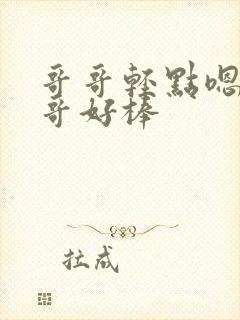 哥哥轻點嗯
哥好棒
拉成